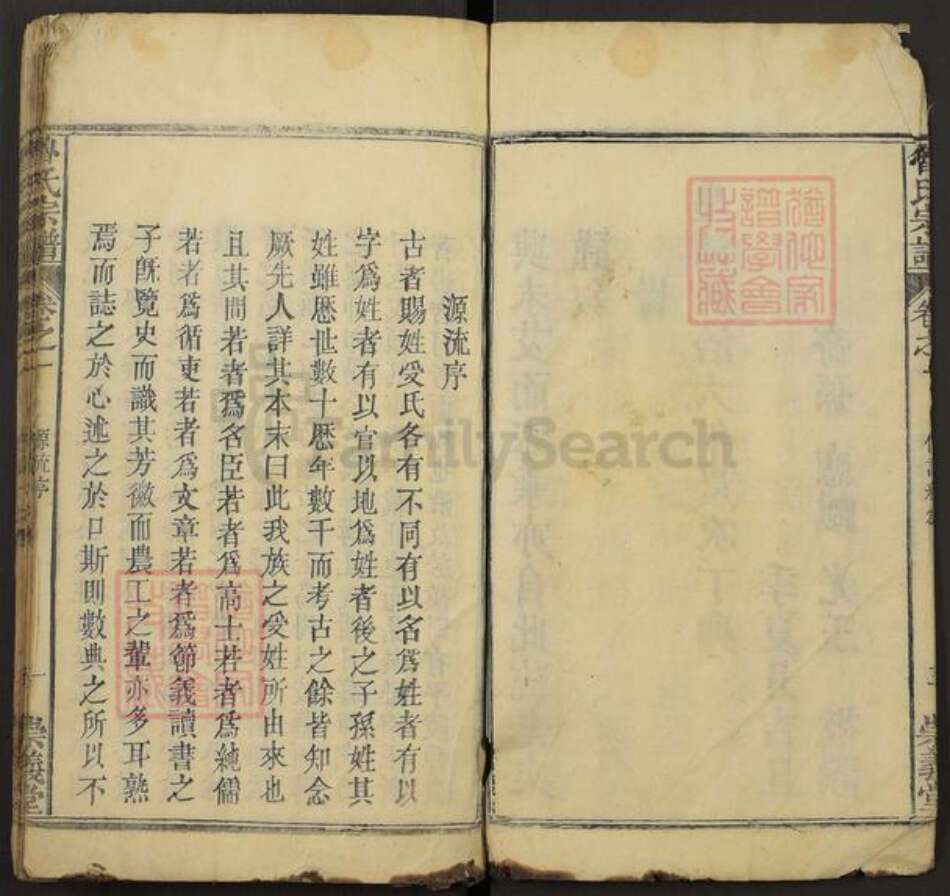 源流序
古者賜姓受氏各有不同有以名爲姓者有以
字爲姓者有以官以地爲姓者後之子孫姓其
姓雖歷世數十歷年數千而考古之餘皆知念
厥先人詳其本末曰此我族之受姓所由來也
且其間若者爲名臣若者爲高士若者爲純儒
若者爲循吏若者爲文章若者爲節義讀書之
子旣覽史而識其芳徽而農工之輩亦多耳熟
焉而誌之於心述之於口斯則數典之所以不
氏宗譜
卷之一
源流序
一
崇義堂
氏宗譜
卷之一
崇義堂
FamilySearch